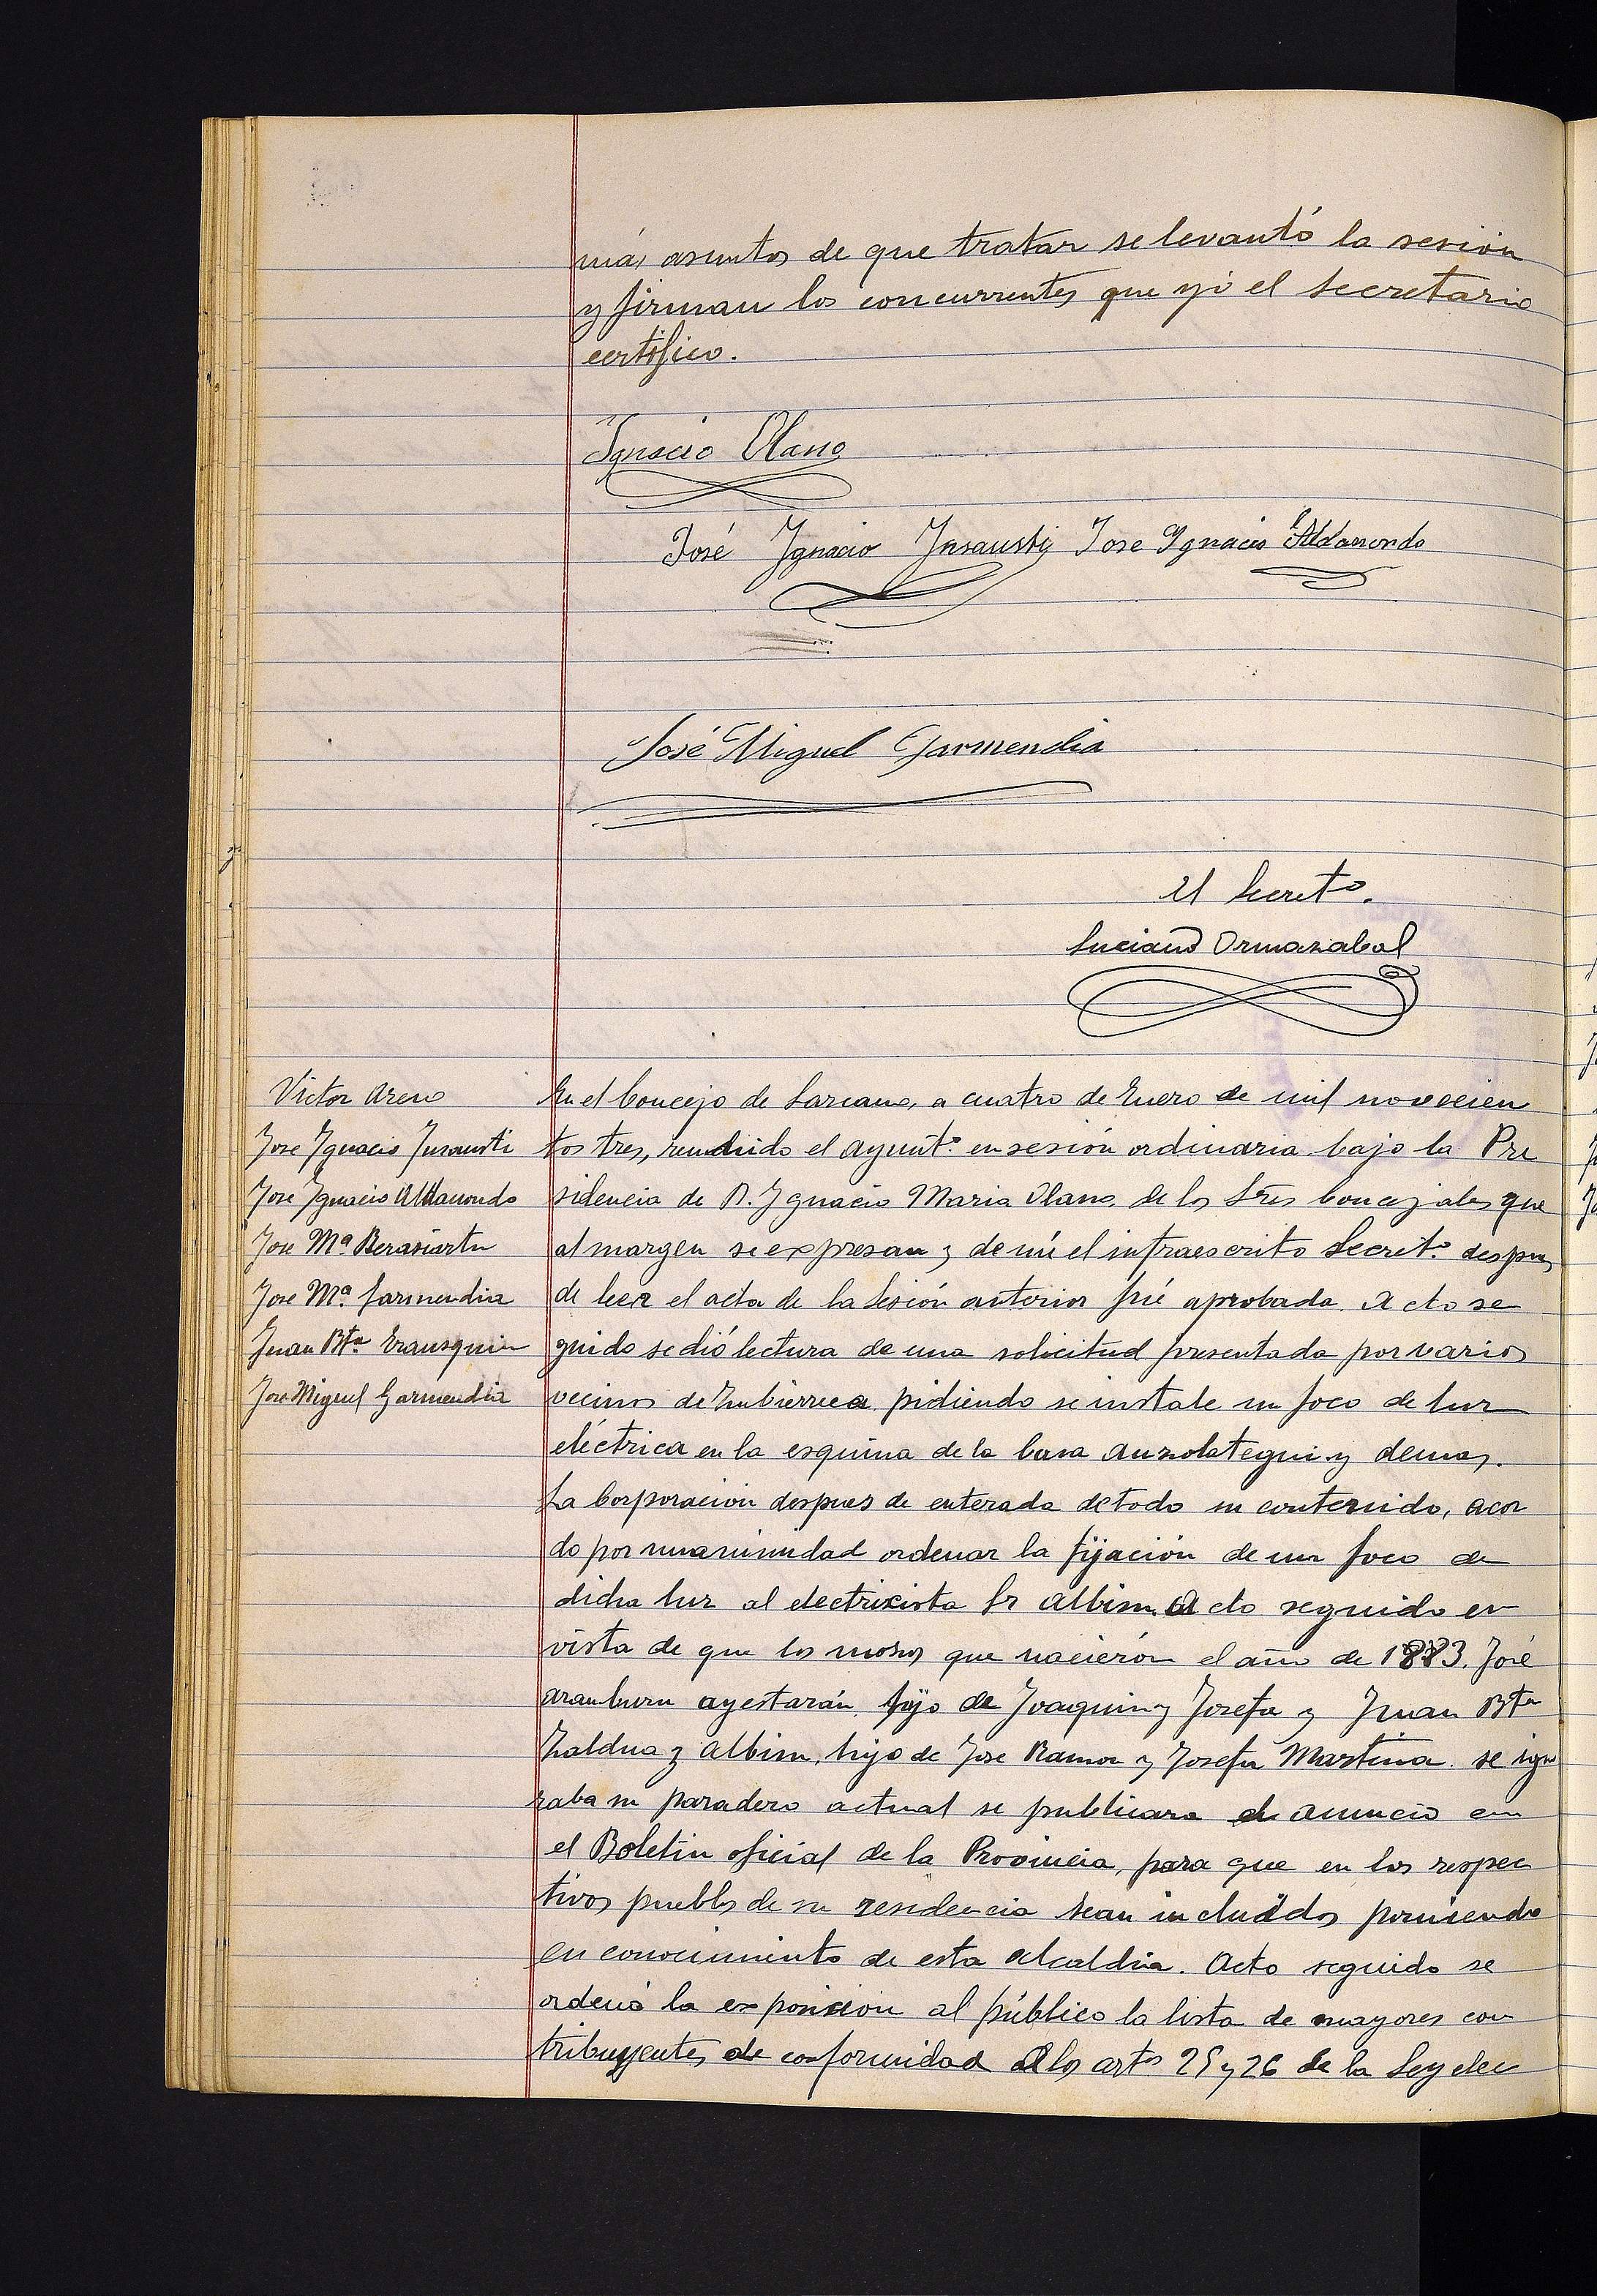 más asuntos de que tratar se levantó la sesión
y firman los concurrentes que yó el Secretario
certifico.
Ignacio Olano
José Ignacio Insausti Jose Ignacio Aldanondo
José Miguel Garmendia
El Secret.º
Luciano Ormazabal
Victor Areno
Jose Ignacio Insausti
Jose Ignacio Aldanondo
Jose Mª Berasiartu
Jose Mª. Garmendia
Juan Bta Erausquin
Jose Miguel Garmendia
En el Concejo de Lazcano, a cuatro de Enero de mil novecien
tos tres, reunido el ayunt.º en sesión ordinaria bajo la Pre
sidencia de D. Ignacio Maria Olano, de los Sres Concejales que
al margen se expresan y de mi el infraescrito Secret.º despues
de leer el acta de la Sesión anterior fué aprobada. Acto se
guido se dió lectura de una solicitud presentada por varios
vecinos de Zubierreca pidiendo se instale un foco de luz
eléctrica en la esquina de la Casa Auzolategui y demas.
La Corporacion despues de enterada de todo su contenido, acor
do por unanimidad ordenar la fijación de un foco de
dicha luz al electricista Sr Albisu. Acto seguido en
vista de que los mozos que nacierón el año de 1883. José
Aramburu ayestarán, hijo de Joaquin y Josefa y Juan Bta
Zaldua y Albisu, hijo de Jose Ramon y Josefa Martina. se igno
raba su paradero actual se publicara de anuncio en
el Boletin oficial de la Provincia, para que en los respec
tivos pueblos de su residencia sean incluidos poniendo
en conocimiento de esta alcaldia. Acto seguido se
ordenó la exposicion al público la lista de mayores con
tribuyentes de conformidad a los artos 25 y 26 de la Ley elec